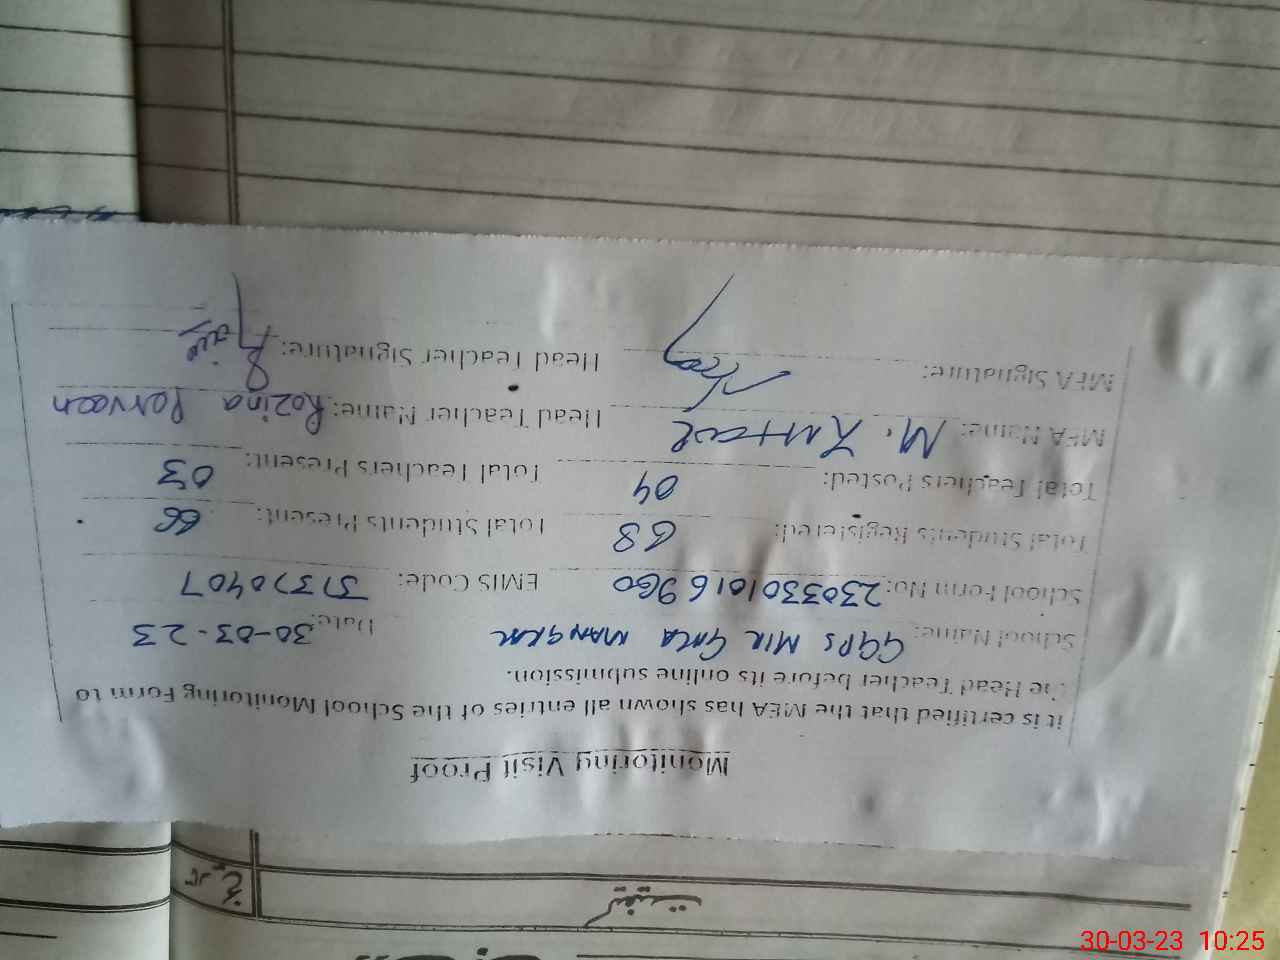 تفتیش
تاریخ
Monitoring Visit Proof
It is certified that the MEA has shown all entries of the School Monitoring Form to
the Head Teacher before its online submission.
School Name: GGPS MIR Date: 30-03-23
School Form No: 2303301016960 EMIS Code: 31370407
Total Students Registered: 68 Total Students Present: 66
Total Teachers Posted: 04 Total Teachers Present: 03
MEA Name: M. Head Teacher Name: Rozina Parveen
MEA Signature: Head Teacher Signature:
30-03-23 10:25